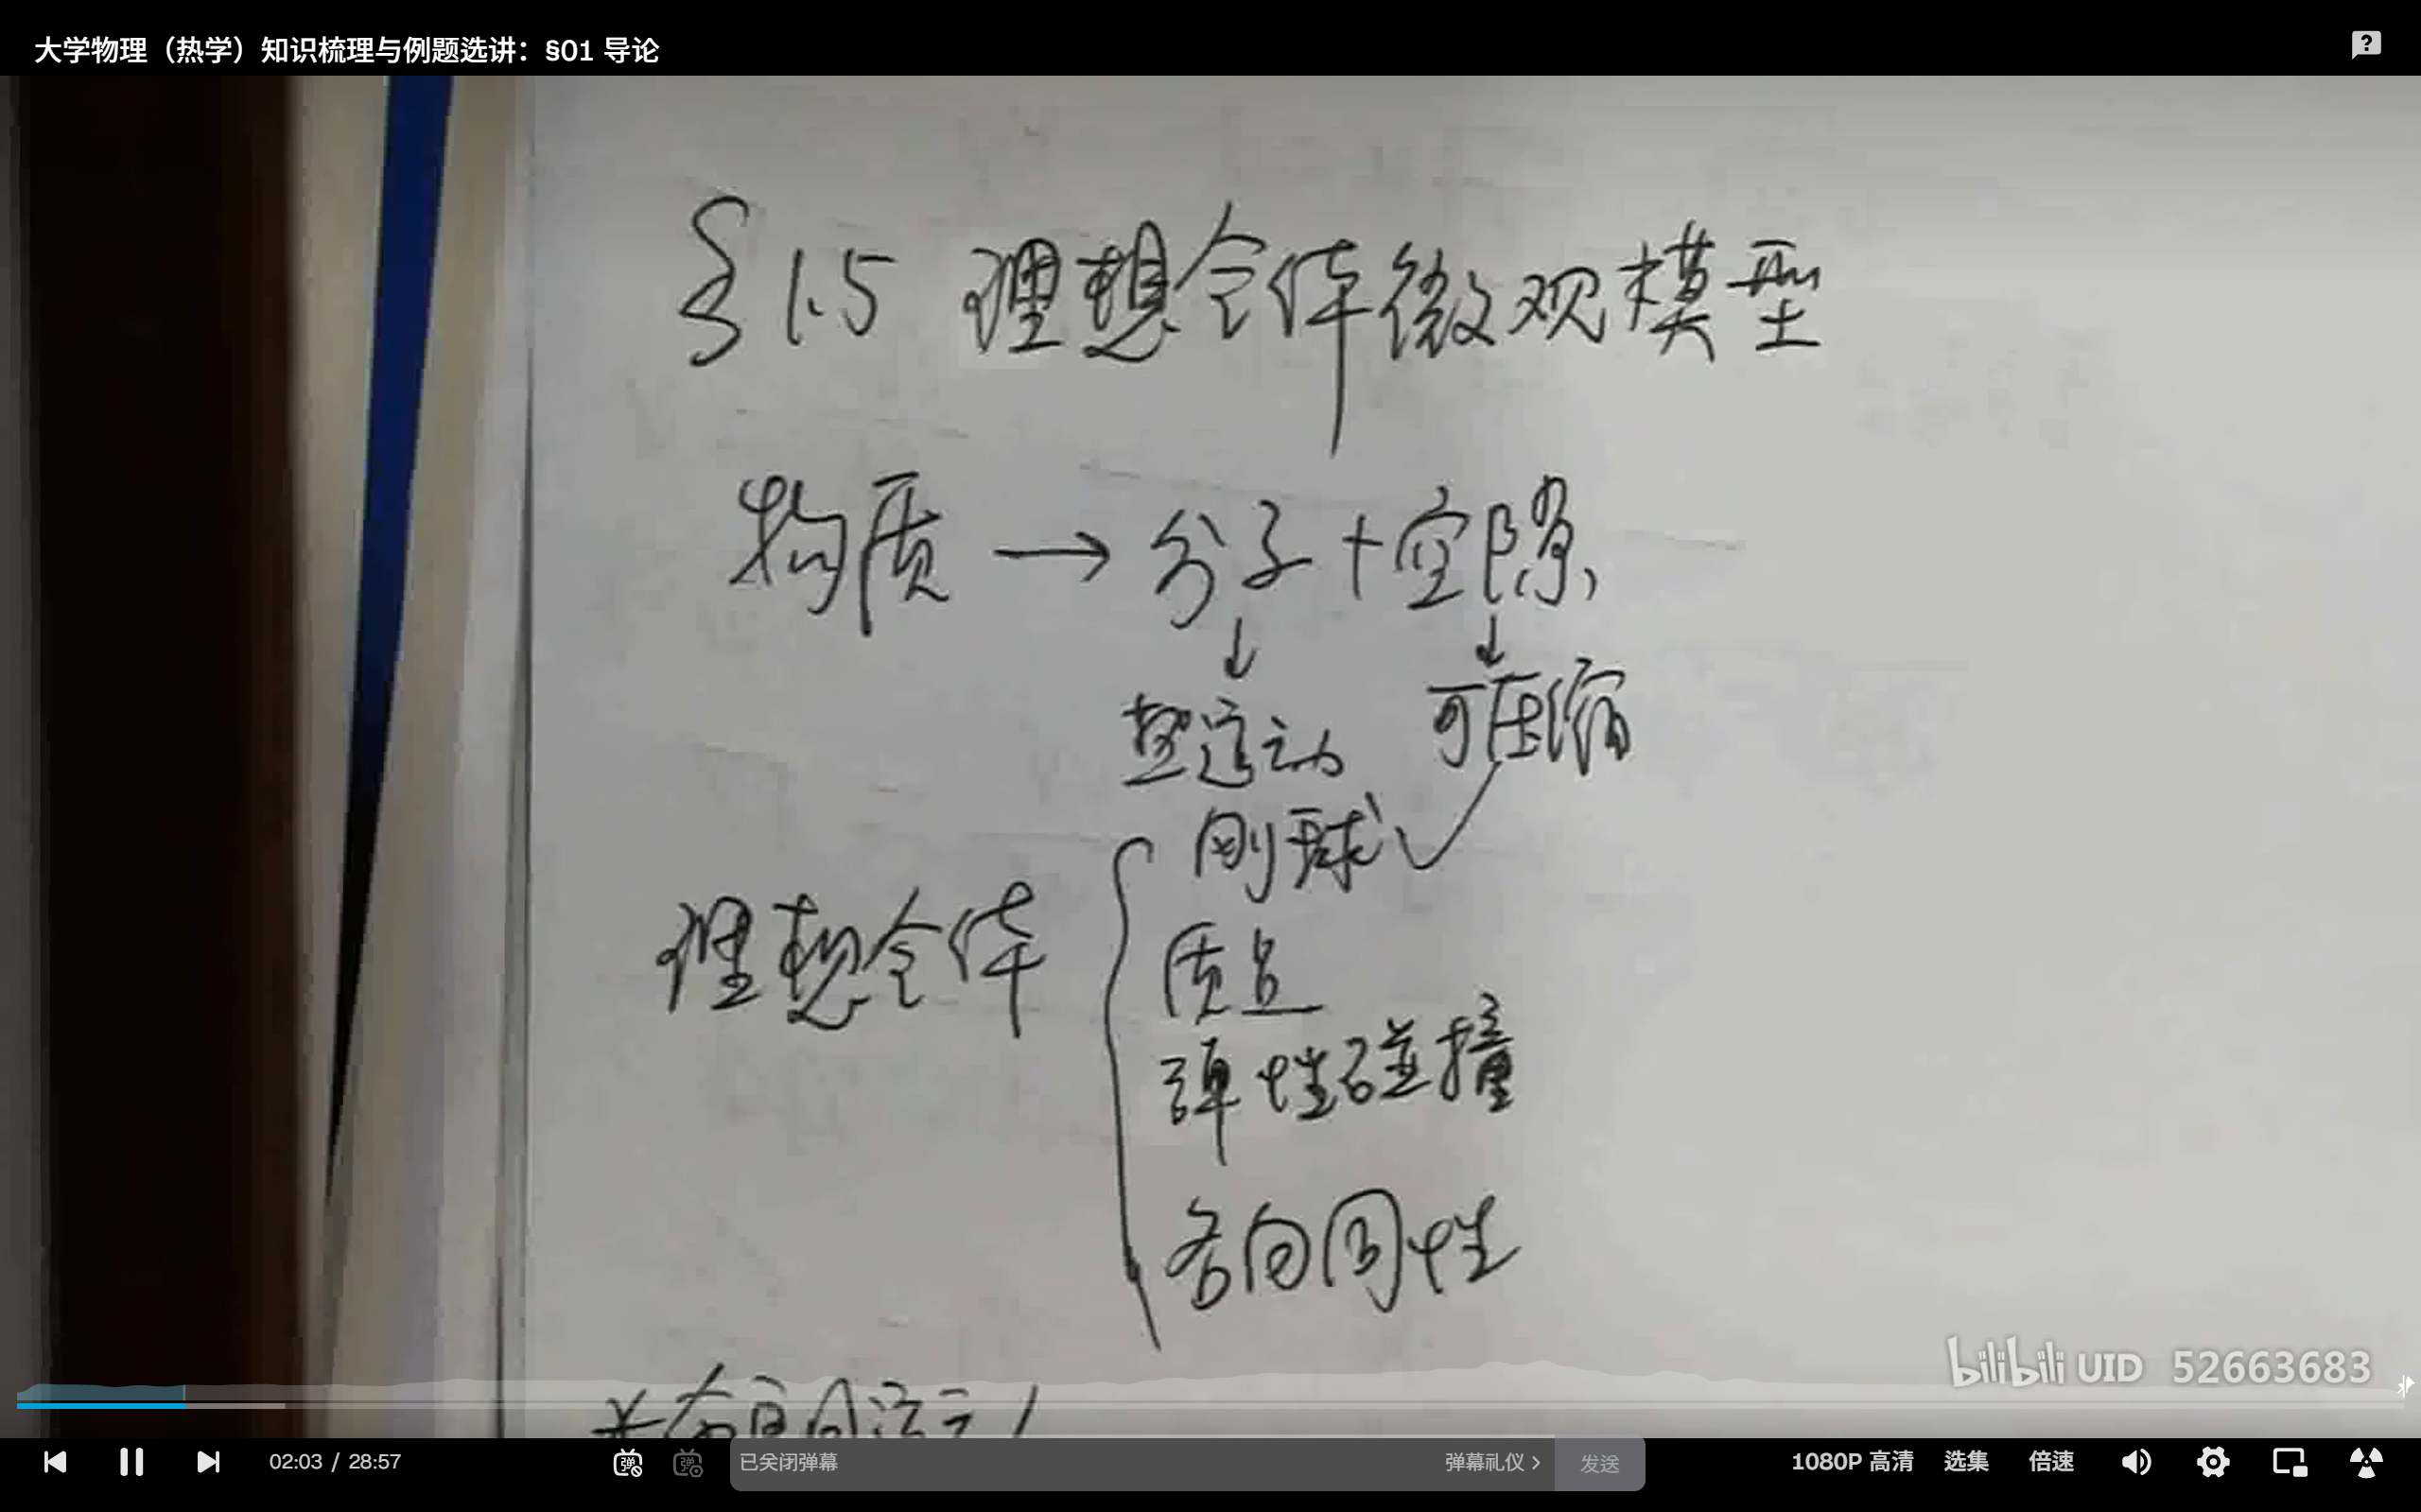 大学物理（热学）知识梳理与例题选讲：§01 导论
§1.5 理想气体微观模型
物质 → 分子 + 空隙
↓ ↓
热运动 可压缩
刚球
理想气体
质点
弹性碰撞
各向同性
bilibili UID 52663683
02:03 / 28:57
弹
弹
已关闭弹幕
弹幕礼仪
发送
1080P 高清
选集
倍速